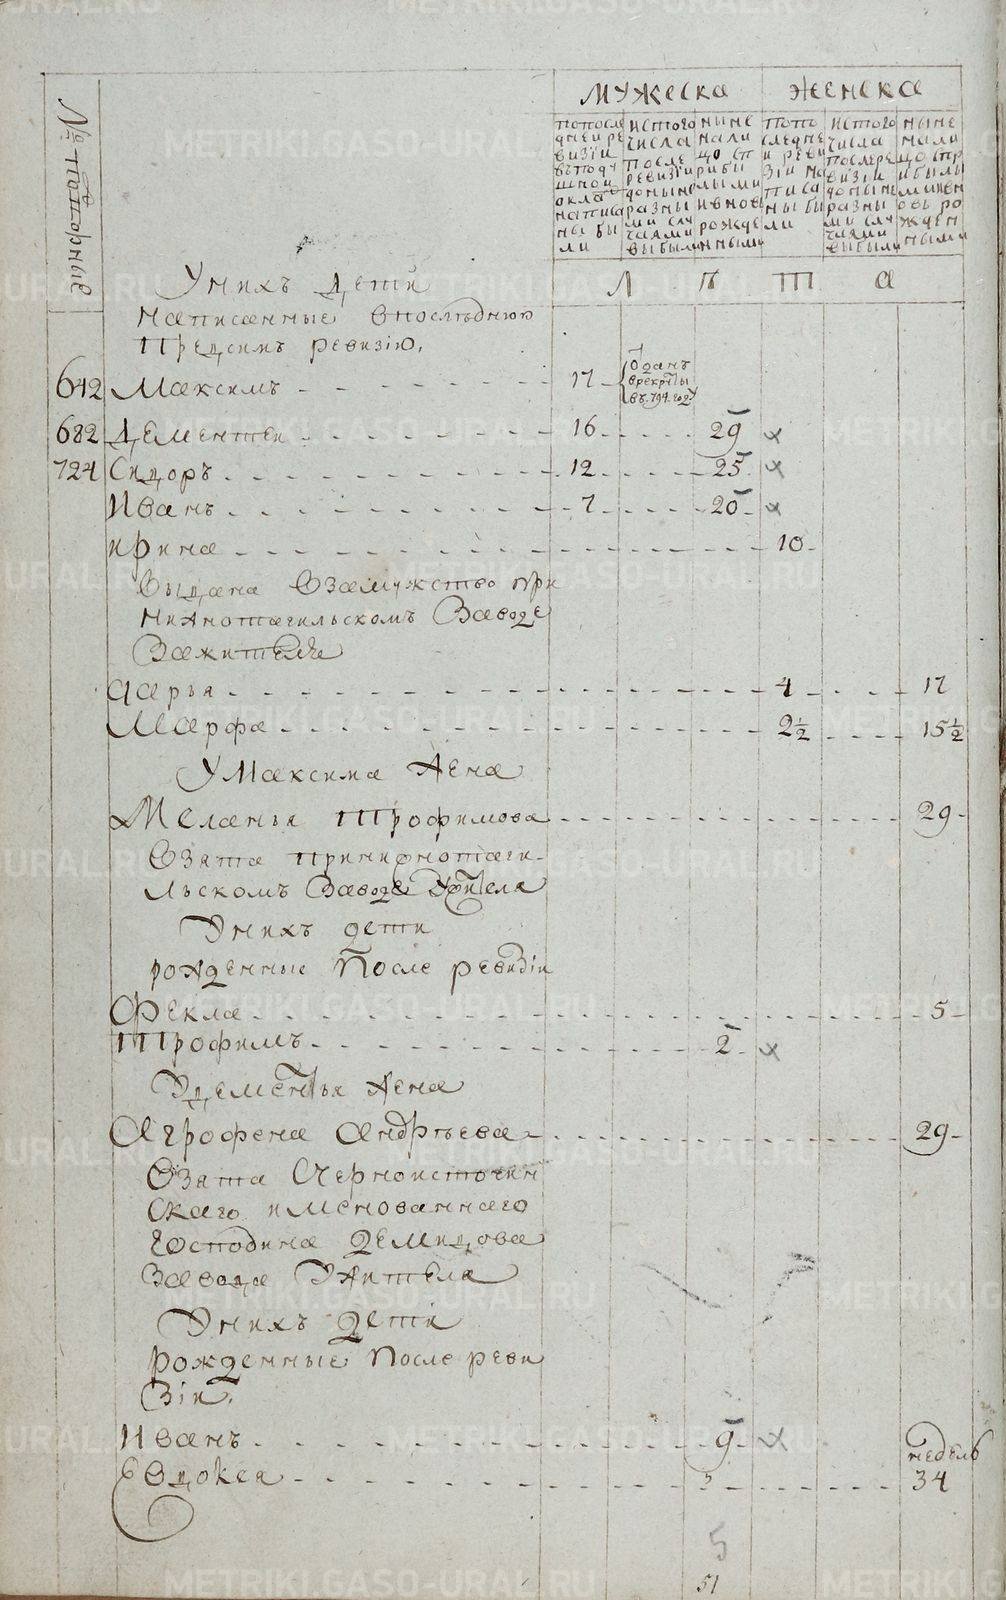 METRIKI.GASO-URAL.RU
№ матерные
мужеска
женска
попосле
дней ре
визіи
въподу
шной
окла
написа
ны бы
ли
истого
числа
после
ревизіи
доныне
разны
ми слу
чаями
выбыли
ныне
нали
цо сп
рибы
лыми
ивновь
рожде
нными
попо
следне
и реви
зіи на
писа
ны бы
ли
истого
числа
послере
визіи
доныне
разны
ми слу
чаями
выбыли
ныне
нали
цо спр
ибылы
миивн
овь ро
жден
ными
Л ѣ т а
Унихъ дети
написанные впоследнюю
предсимъ ревизію,
642 Максимъ 17 Оданъ
врекруты
въ 794 году
682 Дементеи 16 29 x
724 Сидоръ 12 25 x
Иванъ 7 20 x
ирина 10
выдана взамужство при
нижнотагильскомъ Заводе
Зажителя
дарья 4 17
Марфа 2½ 15½
У Максима жена
Меланья Трофимова 29
взята принижнотаги
льскомъ Заводе Ужителя
Унихъ дети
рожденные После ревизіи
Фекла 5
Трофимъ 2 x
Удементья жена
Агрофена андреева 29
взята Счерноисточин
скаго имянованнаго
Господина Демидова
завода Ужителя
Унихъ Дети
рожденные После реви
зіи.
Иванъ 9 x
недель
Евдокея 34
5
51